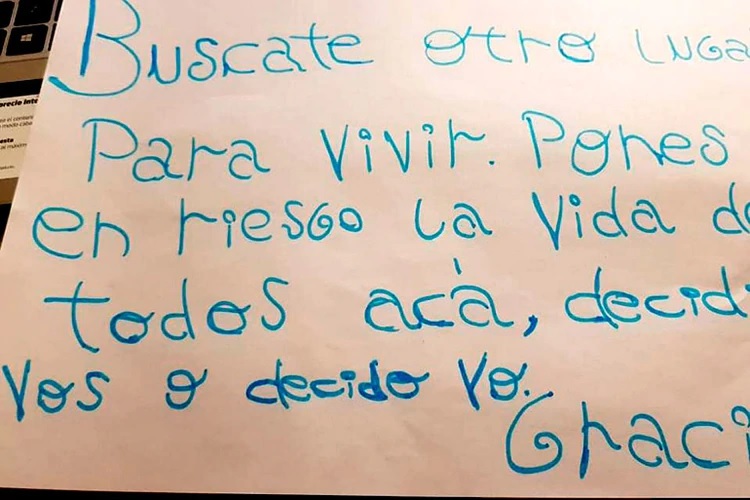 Buscate otro Luga
Para vivir. Pones
en riesgo la vida de
todos acá, decid
vos o decido yo.
Graci